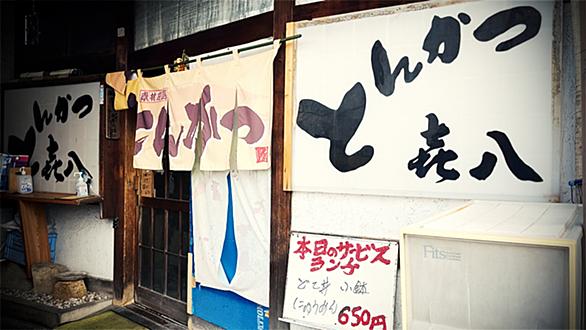 とんかつ
㐂八
とんかつ
とんかつ
㐂八
本日のサービス
ランチ
とて丼 小鉢
にゅうめん
650円
Fits